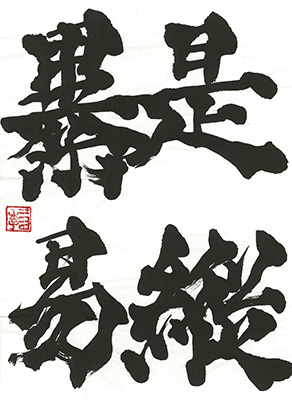 是縱
暴易